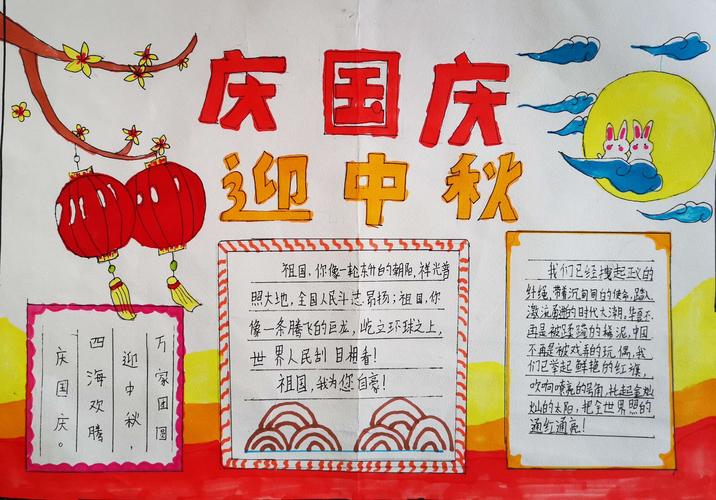 庆国庆
迎中秋
万家团圆
迎中秋,
四海欢腾
庆国庆。
祖国,你像一轮东升的朝阳,祥光普
照大地,全国人民斗志昂扬;祖国,你
像一条腾飞的巨龙,屹立环球之上,
世界人民刮目相看!
祖国,我为您自豪!
我们已经拽起的
纤绳,带着沉甸甸的使命,踏入
激流的时代大潮,华夏不
再是被蹂躏的稀泥,中国
不再是被戏弄的玩偶,我
们已举起鲜艳的红旗,
吹响嘹亮的号角,托起金灿
灿的太阳,把全世界照的
通红通亮!